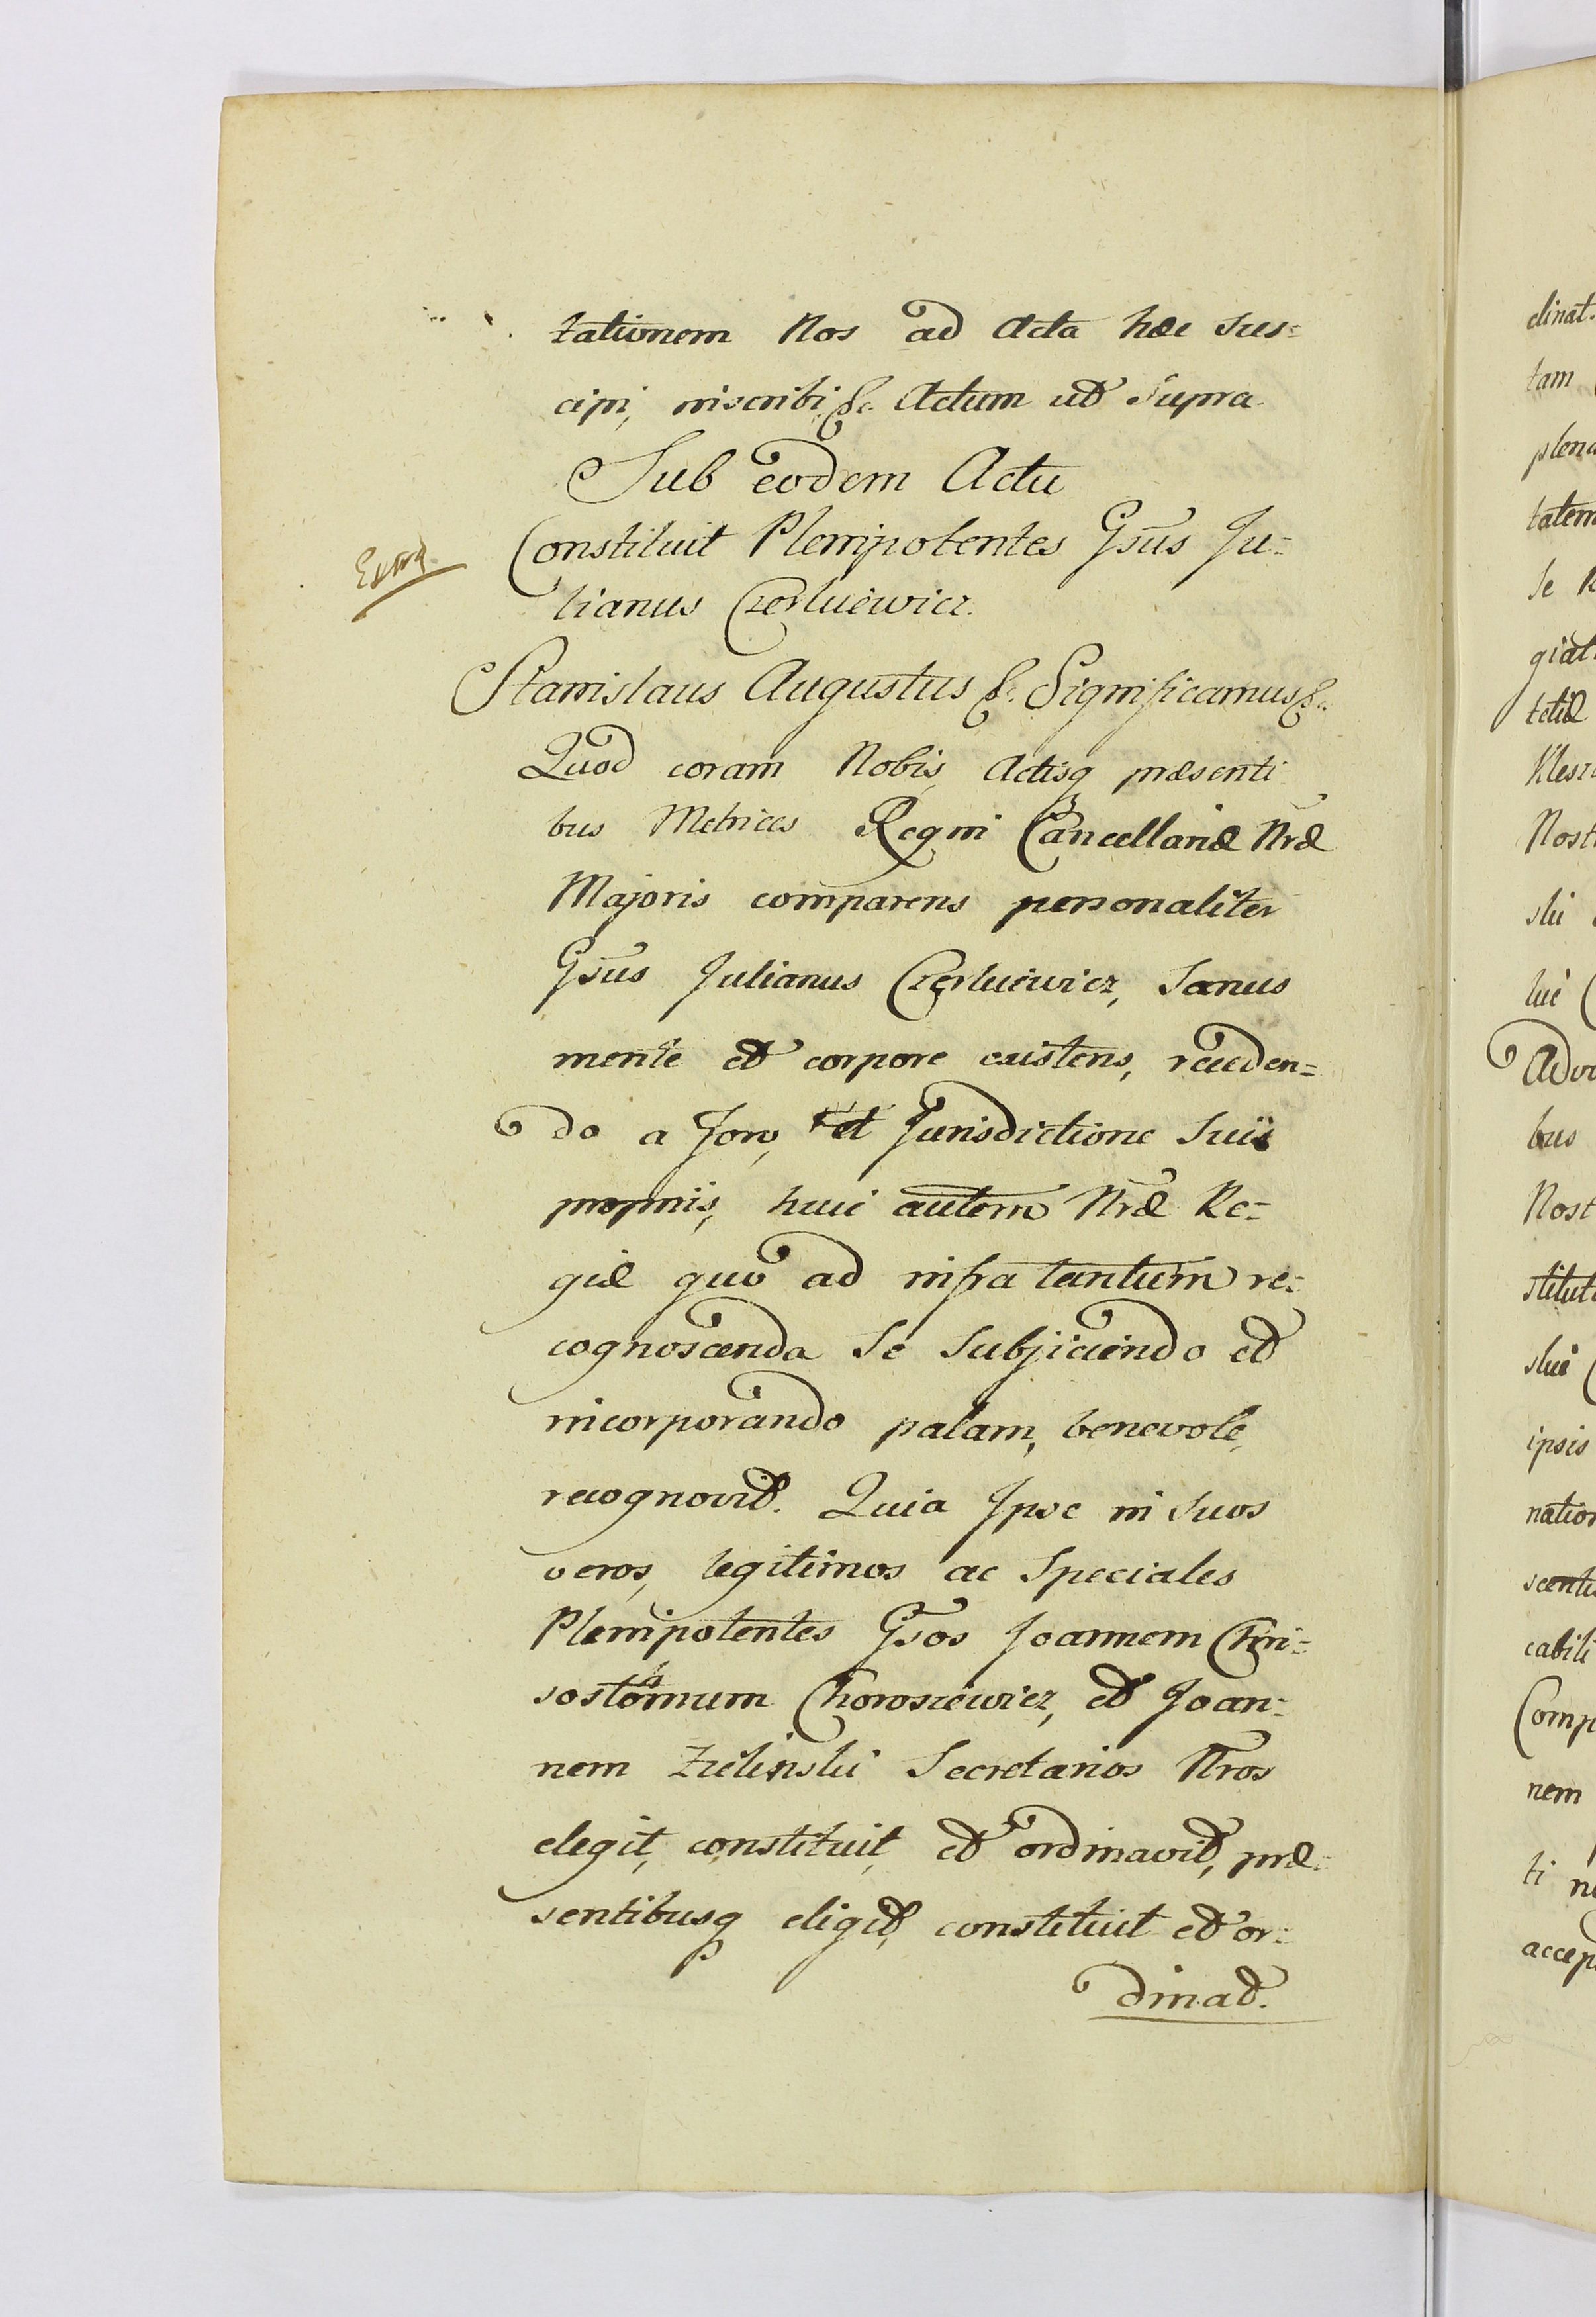 tationem Nos ad Acta hæc sus=
cipi, inscribi &c. Actum ut Supra.
Sub eodem Actu
Constituit Plenipotentes Gsūs Ju=
lianus Czerluiewicz.
Stanislaus Augustus &c. Significamus &c.
Quod coram Nobis, Actisq præsenti
bus Metrices Regni Cancellariæ Nræ
Majoris comparens personaliter
Gsūs Julianus Czerluiewicz, Sanus
mente et corpore existens, receden=
do a Foro, et Jurisdictione suis
propriis, huic autem Nræ Re=
giæ quo ad infra tantum re=
cognoscenda Se Subjiciendo et
incorporando palam, benevole,
recognovit. Quia Ipse in suos
veros, legitimos ac Speciales
Plenipotentes Gsōs Joannem Chri=
sostomum Choroszewicz, et Joan=
nem Zielinski Secretarios Nros
elegit, constituit, et ordinavit, præ=
sentibusq eligit, constituit et or=
dinat.
clinat.
tam
plena
tatem
Se R
giat
Nost
lui
Adv
bus
Nost
stitut
ipsis
nation
cabili
Comp
nem
ti
accep